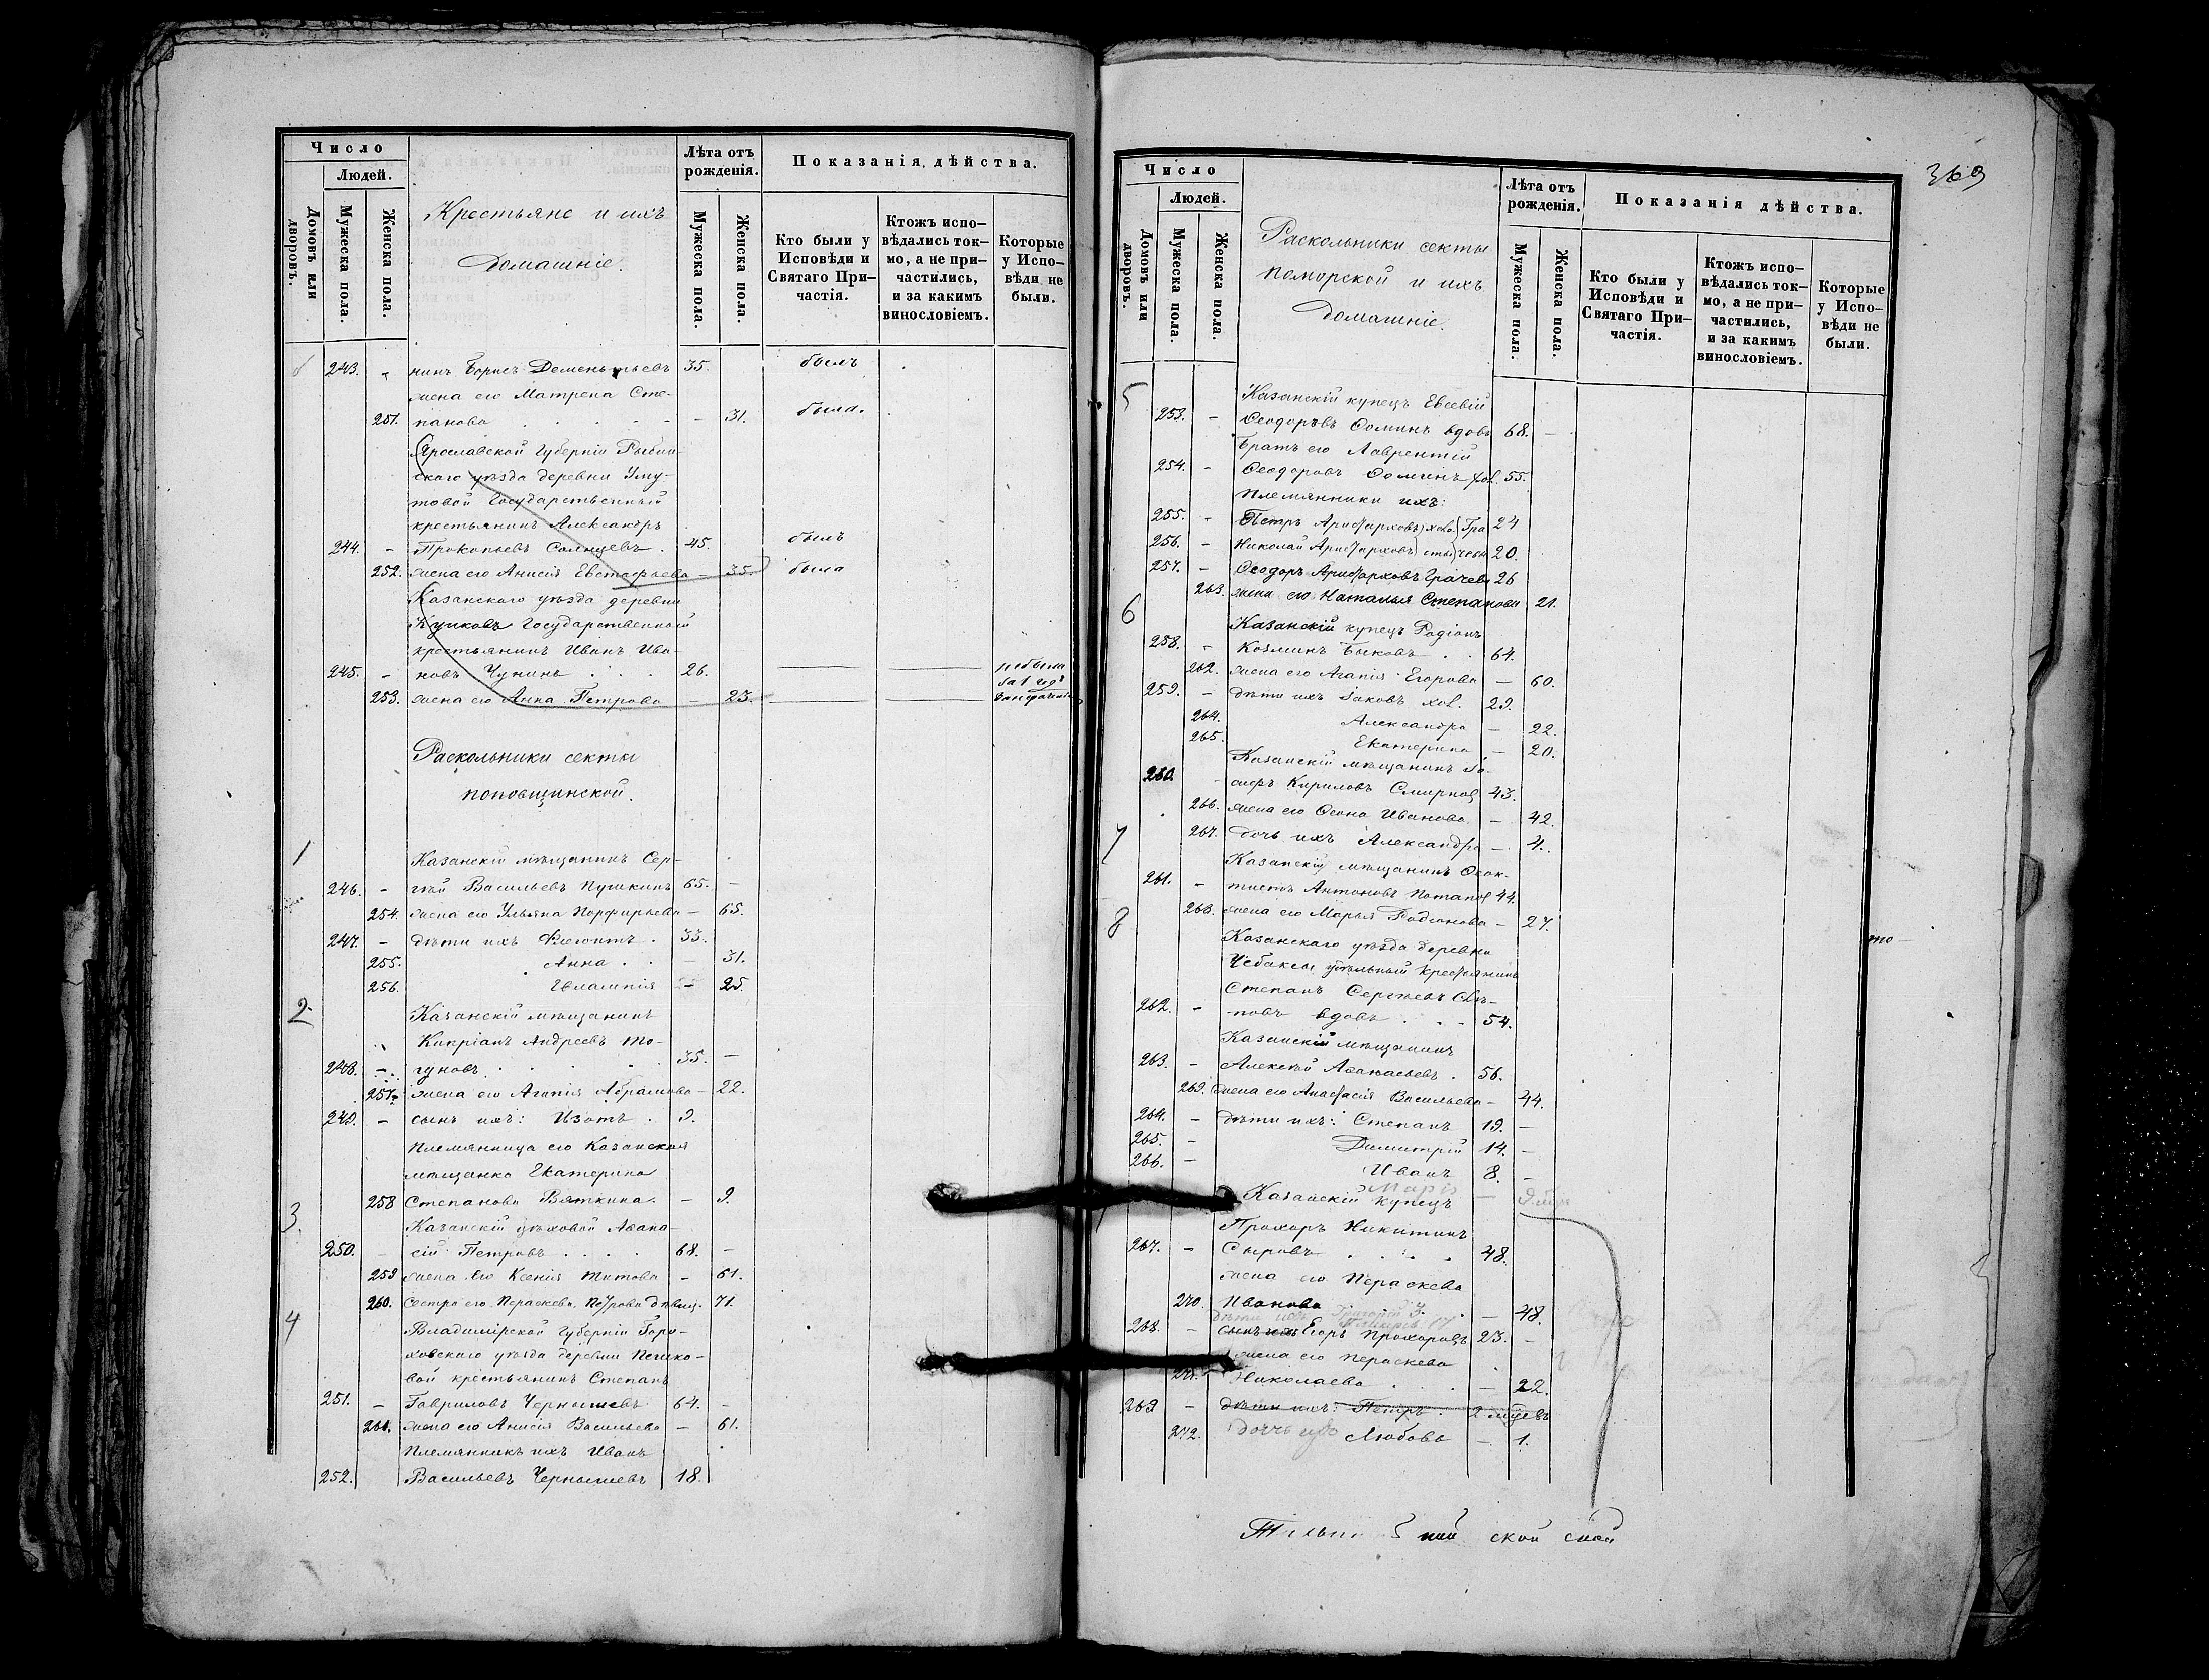 Число
Людей.
Домовъ или дворовъ.
Мужеска пола.
Женска пола.
Крестьяне и ихъ
Домашніе.
Лѣта отъ рожденія.
Мужеска пола.
Женска пола.
Показанія дѣйства.
Кто были у Исповѣди и Святаго При-частія.
Ктожъ испо-вѣдались ток-мо, а не при-частились, и за какимъ винословіемъ.
Которые у Испо-вѣди не были.
243. - нинъ Борисъ Дементьевъ 35. былъ
жена его Матрена Сте-
251. панова - 31. была.
Ярославской Губерніи Рыбин-
скаго уѣзда деревни Уму-
товой Государственный
крестьянинъ Александръ
244. - Прокопьевъ Солнцевъ. 45. былъ
252. жена его Анисія Евстафьева - 35. была
Казанскаго уѣзда деревни
Государственный
крестьянинъ Иванъ Ива-
245. - новъ Чунинъ 26.
253. жена его Анна Петрова - 23.
Раскольники секты
поповщинской.
1 Казанскій мѣщанинъ Сер-
246. - гѣй Васильевъ Пушкинъ 65. -
254. жена его Ульяна Порфирьева - 65.
247. - дѣти ихъ 33.
255. Анна - 31.
256. Евлампія - 25.
2 Казанскій мѣщанинъ
Кипріанъ Андреевъ То-
248. - гуновъ 35. -
257. жена его Агапія Абрамова - 22.
249. - сынъ ихъ: Изотъ. 9.
племянница его Казанская
мѣщанка Екатерина
258 Степанова Вяткина. - 9.
3. Казанскій цѣховой Аѳана-
250. - сій Петровъ 68. -
259 жена его Ксенія Титова - 61.
260. сестра его Параскева Петрова дѣвиц. 71.
4 Владимірской Губерніи Горо-
ховскаго уѣзда деревни
вой крестьянинъ Степанъ
251. - Гавриловъ Чернышевъ 64. -
261. жена его Анисія Васильева - 61.
Племянникъ ихъ Иванъ
252. Васильевъ Чернышевъ 18.
369
Число
Людей.
Домовъ или дворовъ.
Мужеска пола.
Женска пола.
Раскольники секты
поморской и ихъ
Домашніе.
Лѣта отъ рожденія.
Мужеска пола.
Женска пола.
Показанія дѣйства.
Кто были у Исповѣди и Святаго При-частія.
Ктожъ испо-вѣдались ток-мо, а не при-частились, и за какимъ винословіемъ.
Которые у Испо-вѣди не были.
5 Казанскій купецъ Евсевій
253. - Ѳеодоровъ Ѳоминъ вдовъ 68. -
Братъ его Лаврентій
254. - Ѳеодоровъ Ѳоминъ хол. 55.
Племянники ихъ:
255. - Петръ Аристарховъ холо Гра 24
256. - Николай Аристарховъ стые чевы 20.
257. - Ѳеодоръ Аристарховъ Грачевъ 26
263. жена его Наталья Степанова 21.
6 Казанскій купецъ Родіонъ
258. - Козминъ Быковъ 64.
262. жена его Агапія Егорова - 60.
259. - дѣти ихъ Іаковъ хол. 29.
264. Александра - 22.
265. Екатерина - 20.
Казанскій мѣщанинъ Іо-
260. - сифъ Кириловъ Смирнов 43.
266. жена его Иванова - 42.
7 267. дочь ихъ Александра - 4.
Казанскій мѣщанинъ Ѳеок-
261. - тистъ Антоновъ Потапов 44.
8 268. жена его Марья Родіонова - 27.
Казанскаго уѣзда деревни
Чебаксы удѣльный крестьянинъ
Степанъ Сергѣевъ
262. - повъ вдовъ 54.
Казанскій мѣщанинъ
263. - Алексѣй Аѳанасьевъ. 56.
269. жена его Анастасія Васильева - 44.
264. - дѣти ихъ: Степанъ 19. -
265. - Димитрій 14. -
266. - Иванъ 8. -
Марія -
Казанскій купецъ
Прохоръ Никитинъ
267. - Сыровъ 48.
жена его Параскева
270. Иванова - 48.
дѣти ихъ Григорій 3.
268. - сынъ ихъ Егоръ Прохоровъ 23. -
жена его Параскева
271. Николаева - 22.
269 - дѣти ихъ: Петръ. 2 мѣсев
272. дочь Любовь - 1.